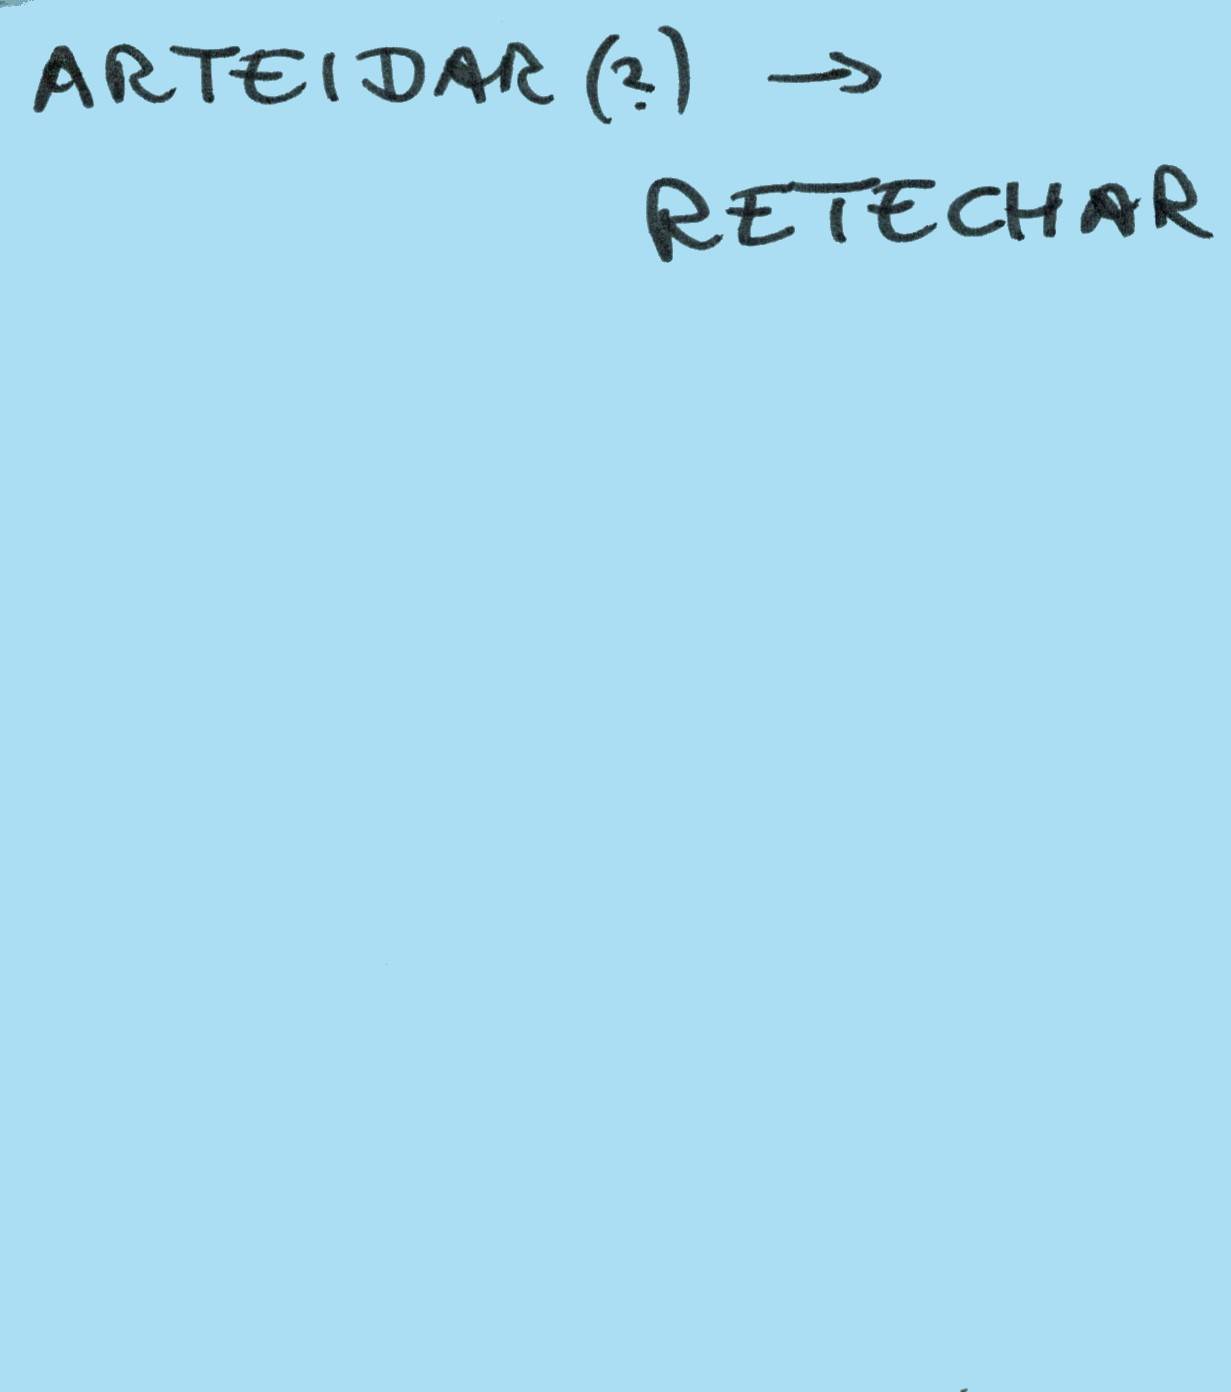 ARTEIDAR (?) →
RETECHAR